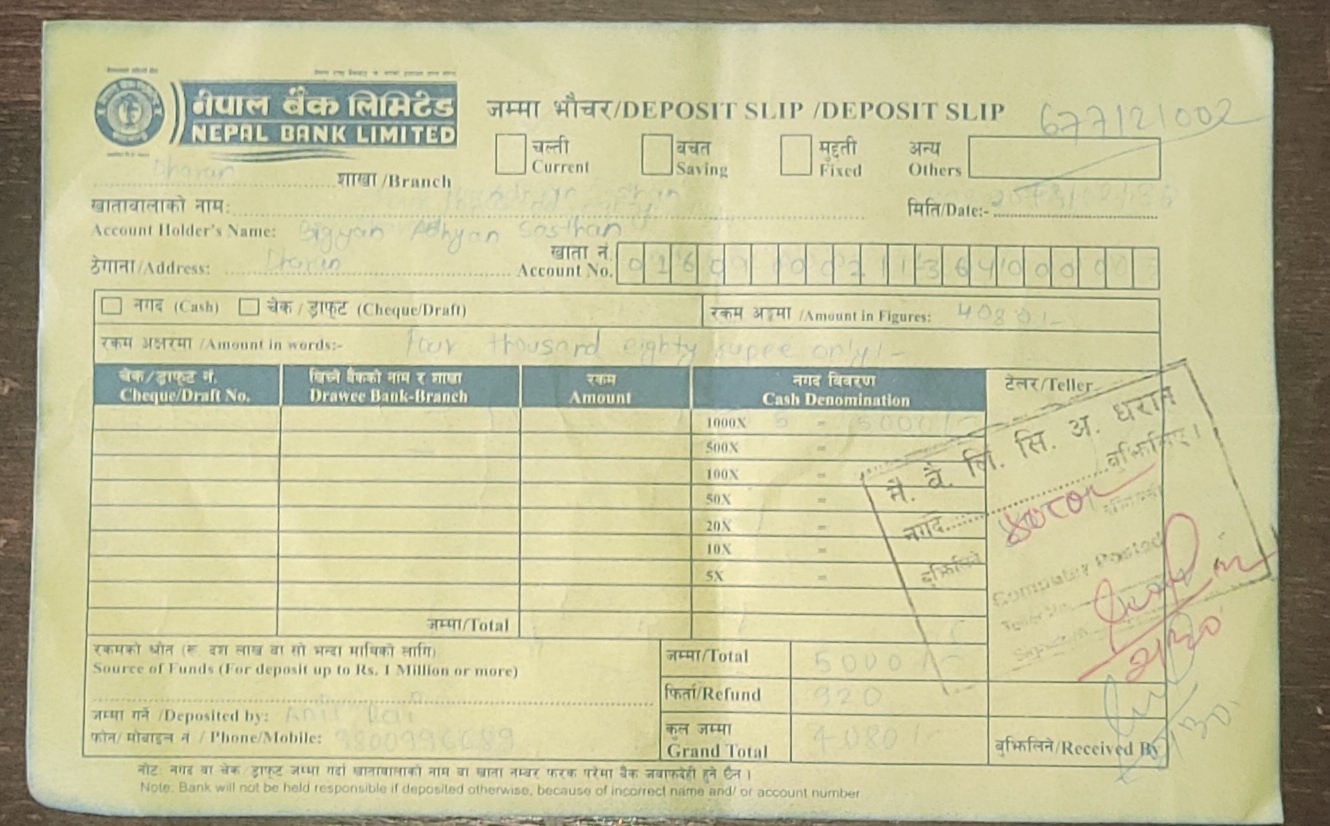 नेपाल बैंक लिमिटेड
NEPAL BANK LIMITED
जम्मा भौचर/DEPOSIT SLIP /DEPOSIT SLIP
677121002
चल्ती Current
बचत Saving
मुद्दती Fixed
अन्य Others
Dharan शाखा /Branch
खातावालाको नाम:
मिति/Date:-
Account Holder's Name: Bigyan Adhyan Sasthan
ठेगाना/Address: Dharan
खाता नं. Account No.
नगद (Cash) चेक / ड्राफ्ट (Cheque/Draft)
रकम अङ्कमा /Amount in Figures: 4080/-
रकम अक्षरमा /Amount in words:- Four thousand eighty rupee only/-
चेक/ड्राफ्ट नं. Cheque/Draft No.
खिच्ने बैंकको नाम र शाखा Drawee Bank-Branch
रकम Amount
नगद विवरण Cash Denomination
टेलर/Teller
1000X 5 = 5000/-
500X =
100X =
50X =
20X =
10X =
5X =
जम्मा/Total
ने. बै. लि. सि. अ. धरान
नगद बुझिलिए।
बुझिलिने
Computer Posted
रकमको श्रोत (रू. दश लाख वा सो भन्दा माथिको लागि)
Source of Funds (For deposit up to Rs. 1 Million or more)
जम्मा/Total 5000/-
फिर्ता/Refund 920
जम्मा गर्ने /Deposited by:
फोन/ मोबाइल नं / Phone/Mobile: 9800996689
कुल जम्मा Grand Total 4080/-
बुझिलिने/Received By
नोट: नगद वा चेक/ड्राफ्ट जम्मा गर्दा खातावालाको नाम वा खाता नम्बर फरक परेमा बैंक जवाफदेही हुने छैन।
Note: Bank will not be held responsible if deposited otherwise, because of incorrect name and/ or account number.